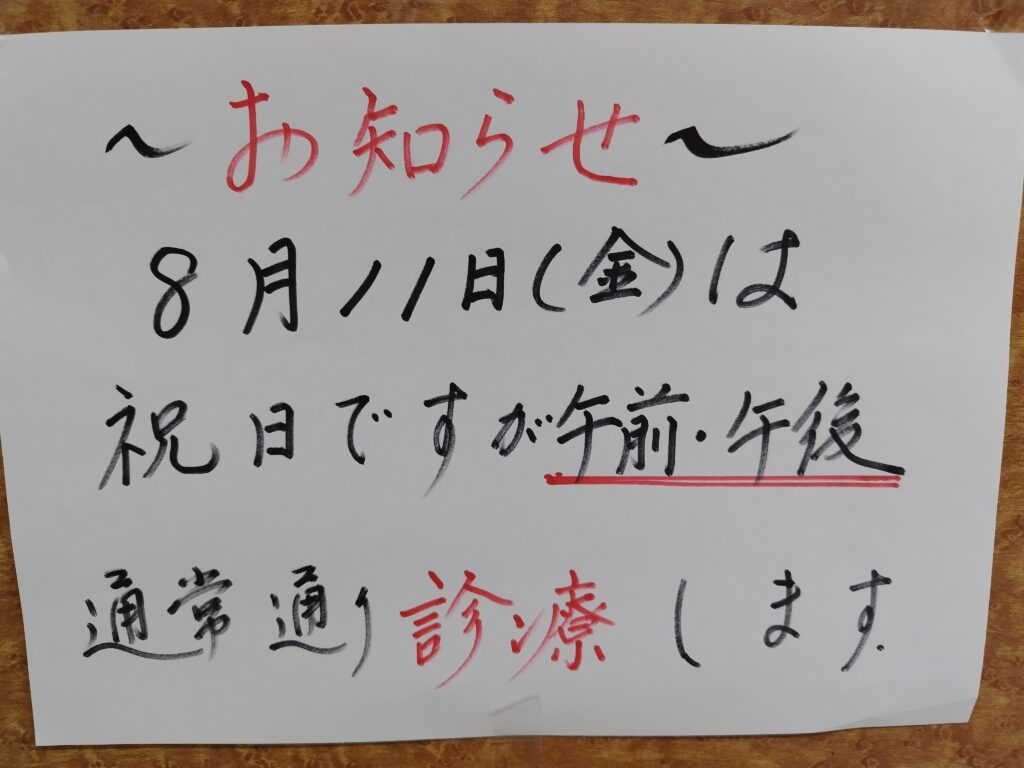 ～お知らせ～
8月11日(金)は
祝日ですが午前・午後
通常通り診療します.